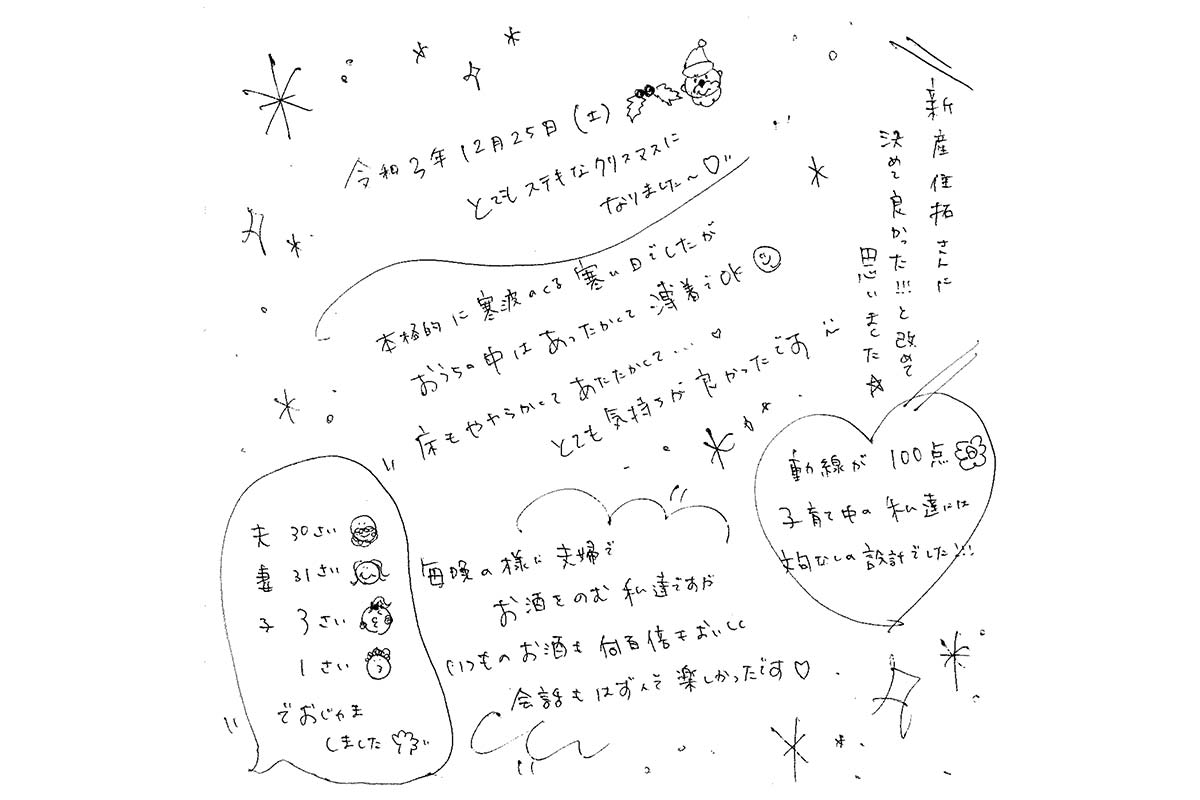 令和3年12月25日(土)
とてもステキなクリスマスに
なりました〜♡
本格的に寒波のくる寒い日でしたが
おうちの中はあったかくて薄着でOK
床もやわらかくてあたたかくて…♡
とても気持ちが良かったです
新産住拓さんに
決めて良かった!!!と改めて
思いました☆
動線が100点
子育て中の私達には
文句なしの設計でした!!!
夫 30さい
妻 31さい
子 3さい
1さい
でおじゃま
しました
毎晩の様に夫婦で
お酒をのむ私達ですが
いつものお酒も何百倍もおいしく
会話もはずんで楽しかったです♡